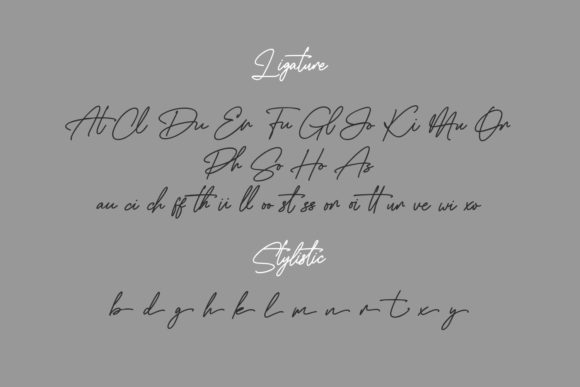 Ligature
At Cl Du En Fu Gl Jo Ki Mu On
Ph So Ho As
au ci ch ff th ii ll oo st ss on oi tt un ve wi xo
Stylistic
b d g h k l m n r t x y